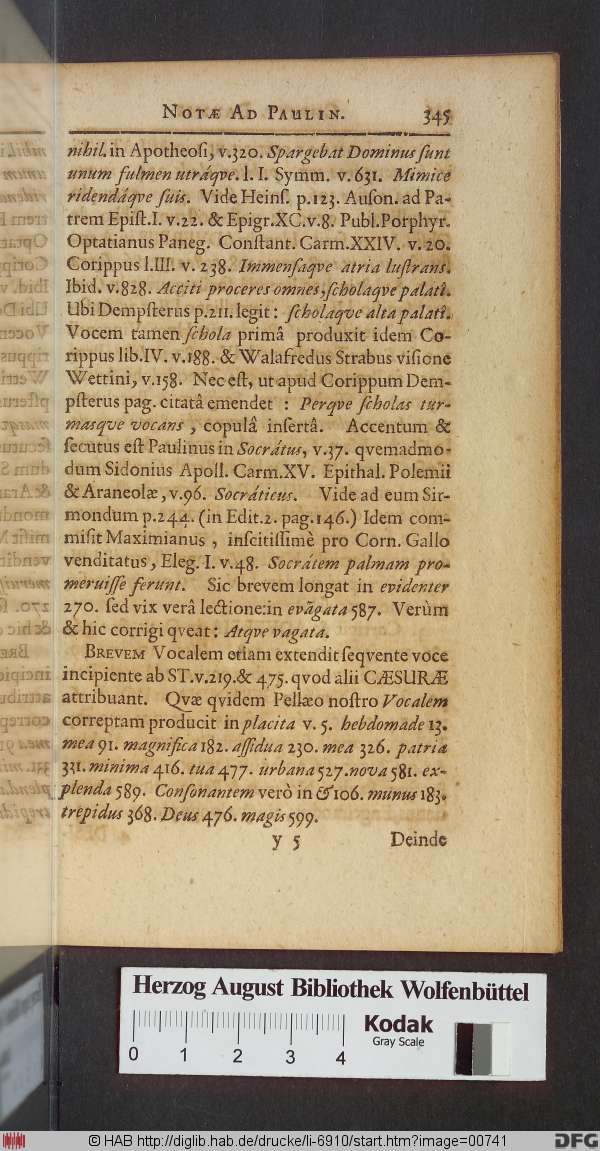 NOTÆ AD PAULIN. 345
nihil. in Apotheosi, v.320. Spargebat Dominus sunt
unum fulmen utráqve. l. I. Symm. v. 631. Mimice
ridendáqve suis. Vide Heins. p.123. Auson. ad Pa-
trem Epist.I. v.22. & Epigr.XC.v.8. Publ.Porphyr.
Optatianus Paneg. Constant. Carm.XXIV. v. 20.
Corippus l.III. v. 238. Immensaqve atria lustrans.
Ibid. v.828. Acciti proceres omnes, scholaqve palatî.
Ubi Dempsterus p.211. legit: scholaqve alta palatî.
Vocem tamen schola primâ produxit idem Co-
rippus lib.IV. v.188. & Walafredus Strabus visione
Wettini, v.158. Nec est, ut apud Corippum Dem-
psterus pag. citatâ emendet : Perqve scholas tur-
masqve vocans, copulâ insertâ. Accentum &
secutus est Paulinus in Socrátus, v.37. qvemadmo-
dum Sidonius Apoll. Carm.XV. Epithal. Polemii
& Araneolæ, v.96. Socráticus. Vide ad eum Sir-
mondum p.244. (in Edit.2. pag.146.) Idem com-
misit Maximianus, inscitissimè pro Corn. Gallo
venditatus, Eleg. I. v.48. Socrátem palmam pro-
meruisse ferunt. Sic brevem longat in evidenter
270. sed vix verâ lectione: in evāgata 587. Verùm
& hic corrigi qveat: Atqve vagata.
BREVEM Vocalem etiam extendit seqvente voce
incipiente ab ST. v.219. & 475. qvod alii CÆSURÆ
attribuant. Qvæ qvidem Pellæo nostro Vocalem
correptam producit in placita v. 5. hebdomade 13.
mea 91. magnifica 182. assidua 230. mea 326. patria
331. minima 416. tua 477. urbana 527. nova 581. ex-
plenda 589. Consonantem verò in & 106. munus 183.
trepidus 368. Deus 476. magis 599.
y 5 Deinde
Herzog August Bibliothek Wolfenbüttel
0 1 2 3 4
Kodak
Gray Scale
© HAB http://diglib.hab.de/drucke/li-6910/start.htm?image=00741
DFG